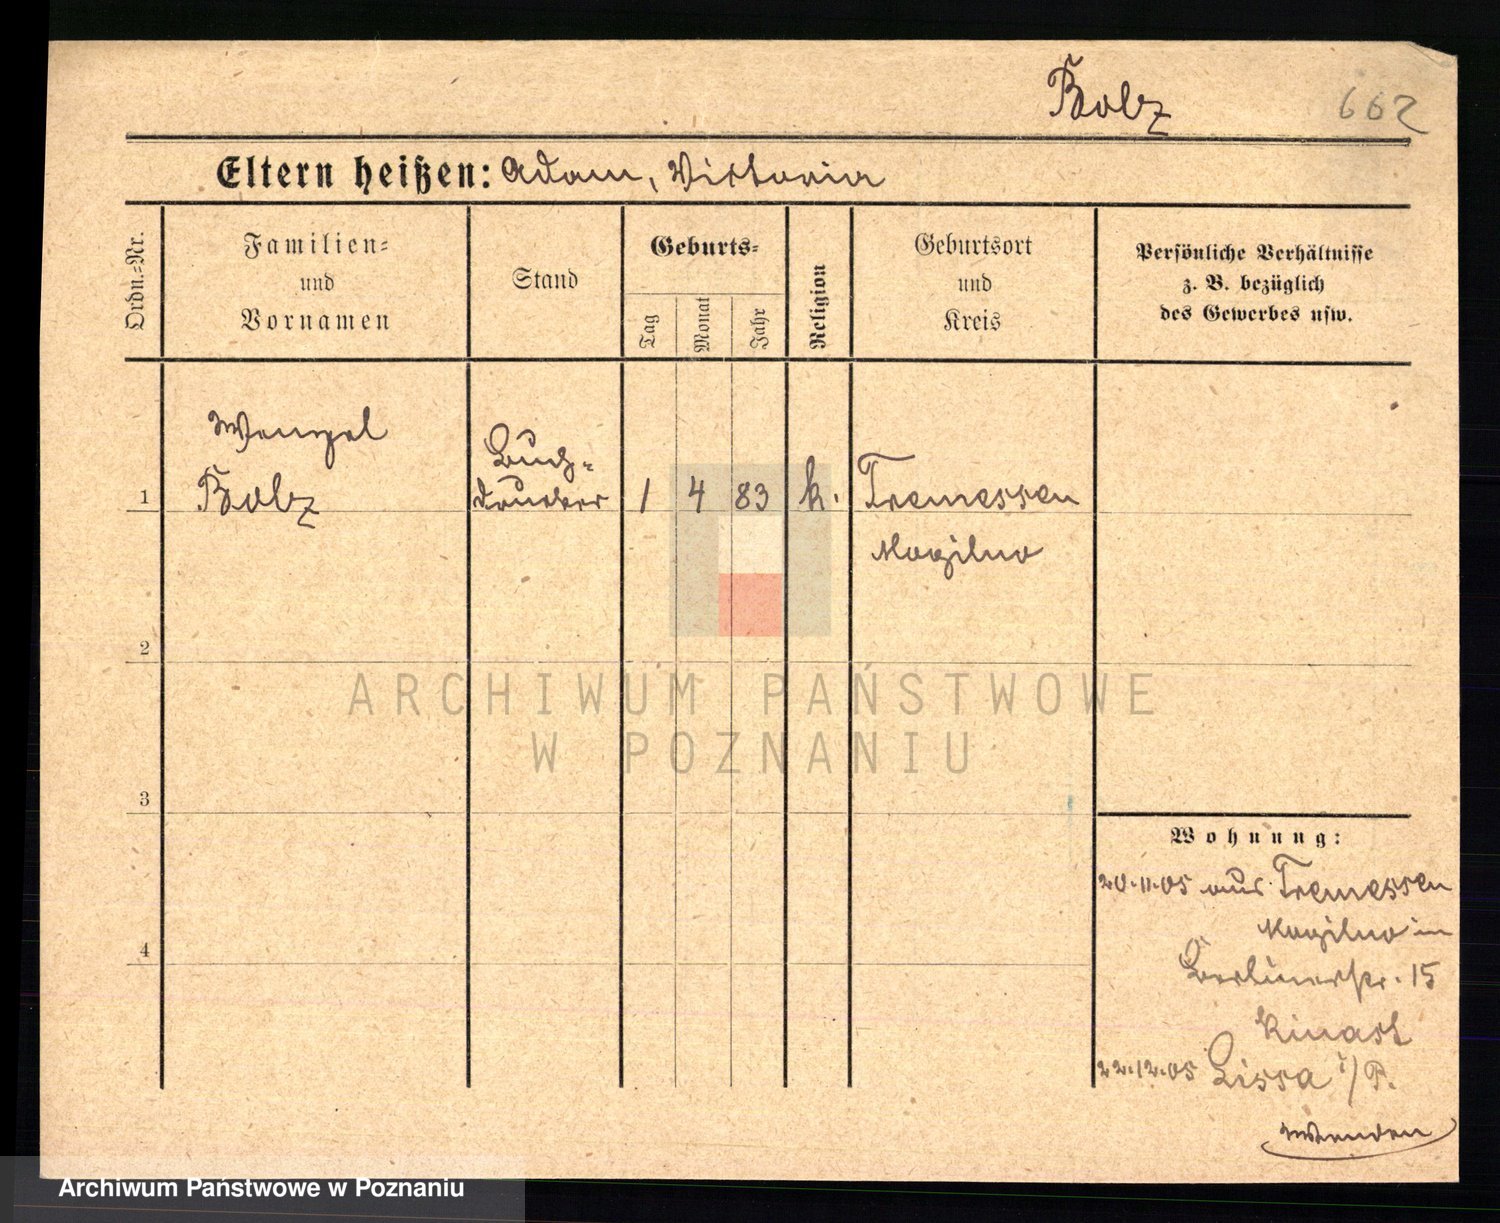 Bolz 662
Eltern heißen: Adam, Viktoria
Ordn.-Nr.
Familien-
und
Vornamen
Stand
Geburts-
Tag
Monat
Jahr
Religion
Geburtsort
und
Kreis
Persönliche Verhältnisse
z. B. bezüglich
des Gewerbes usw.
Wenzel
Buch-
1 Bolz drucker 1 4 83 k. Tremessen
Mogilno
2
ARCHIWUM PAŃSTWOWE
W POZNANIU
3
Wohnung:
20.11.05 aus Tremessen
Mogilno in
4
Berlinerstr. 15
Kinast
22.12.05 Lissa i/P.
Wenden
Archiwum Państwowe w Poznaniu